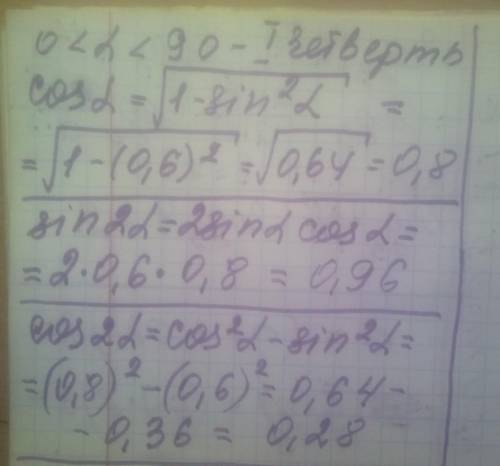 0 < α < 90 - I четверть
cos α = √(1 - sin²α) =
= √(1 - (0,6)²) = √(0,64) = 0,8
sin2α = 2sinα cosα =
= 2 · 0,6 · 0,8 = 0,96
cos2α = cos²α - sin²α =
= (0,8)² - (0,6)² = 0,64 -
- 0,36 = 0,28